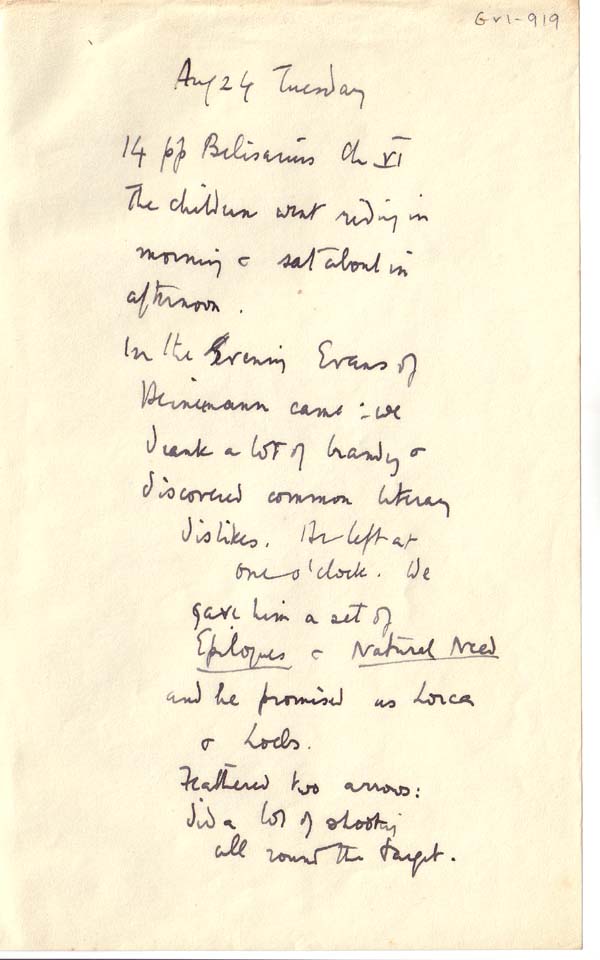 Gv1-919
Aug 24 Tuesday
14 pp Belisarius Ch VI
The children went riding in
morning & sat about in
afternoon.
In the Evening Evans of
Heinemann came :- we
drank a lot of brandy &
discovered common literary
dislikes. He left at
one o'clock. We
gave him a set of
Epilogues & Natural Need
and he promised us Lorca
& Loebs.
Feathered two arrows:
did a lot of shooting
all round the target.